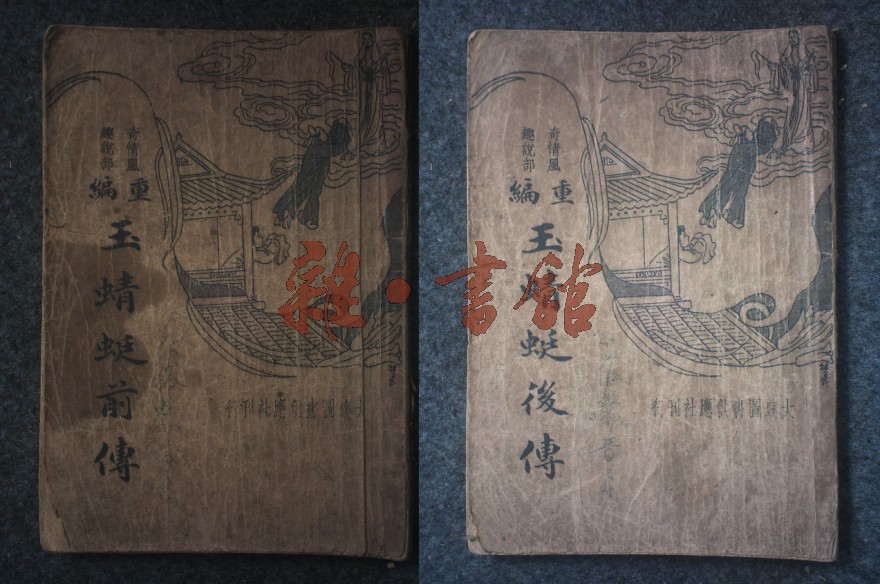 奇情風
趣說部
重編
玉蜻蜓前傳
大達圖書供應社刊行
奇情風
趣說部
重編
玉蜻蜓後傳
大達圖書供應社刊行
雜·書館